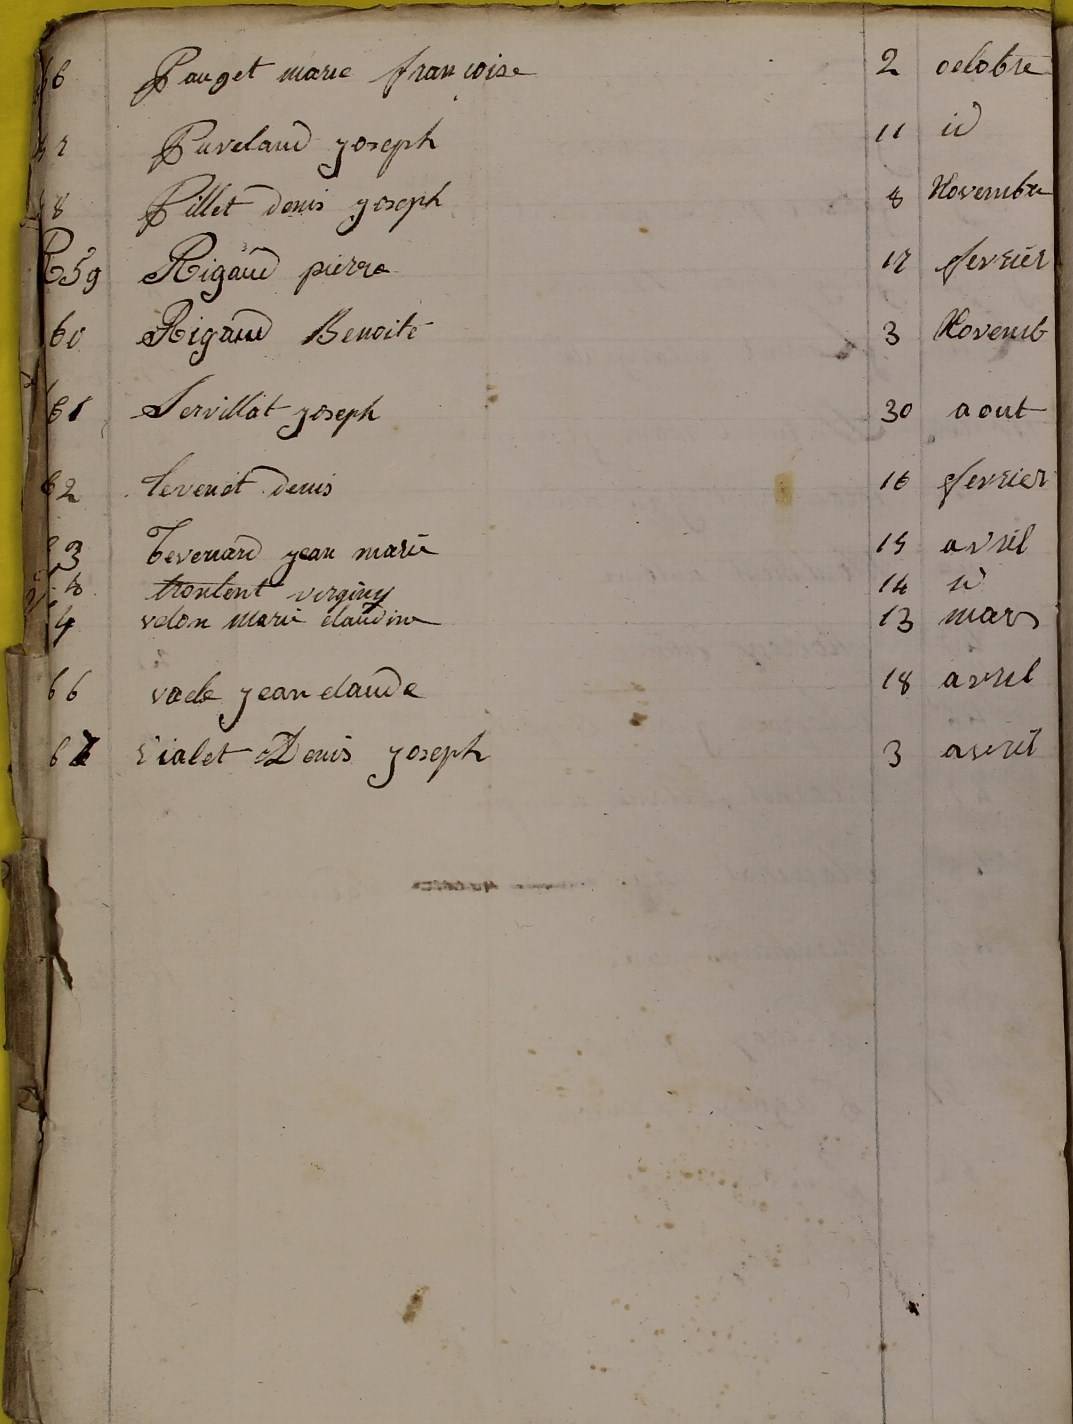 56 Pauget marie françoise 2 octobre
57 Puveland joseph 11 id
58 Pillet denis joseph 8 Novembre
R 59 Rigaud pierre 17 fevrier
60 Rigaud Benoite 3 Novemb
61 Servillat joseph 30 aout
62 tevenot denis 16 fevrier
63 Tevenard jean marie 15 avril
virginy 14 id
velon marie claudine 13 mars
66 vade jean claude 18 avril
67 Vialet Denis joseph 3 avril